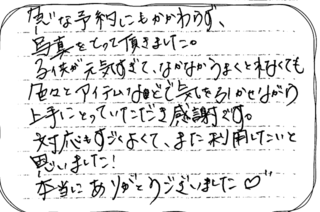 急な予約にもかかわらず、
写真をとって頂きました。
子供が元気すぎて、なかなかうまくとれなくても
色々とアイテムなどで気を引かせながら
上手にとっていただき感謝です。
対応もすごくよくて、また利用したいと
思いました!
本当にありがとうございました♡